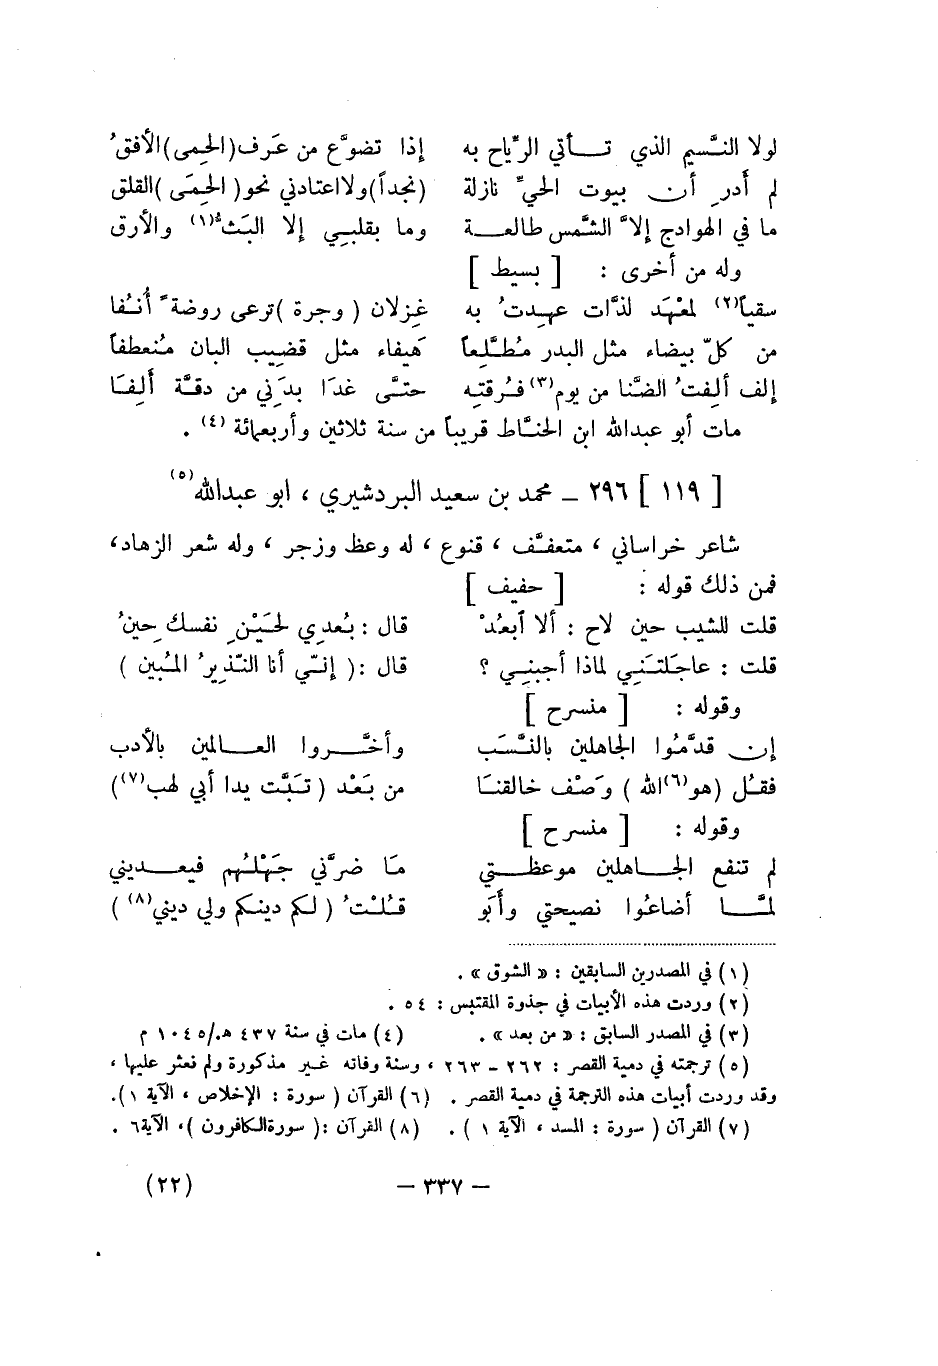 لولا النَّسيم الذي تـــأتي الرِّياح به إذا تضوَّع من عَرف(الحِمى)الأفقُ
لم أدرِ أن بيوت الحيِّ نازلة (نجداً)ولااعتادني نحو(الحِمَى)القلق
ما في الهوادج إلاَّ الشَّمس طالعـــة وما بقلبي إلا البَثُّ(١) والأرق
وله من أخرى : [ بسيط ]
سقياً(٢) لمعْهَد لذَّات عهدتُ به غِزلان ( وجرة )ترعى روضةً أُنُفا
من كلّ بيضاء مثل البدر مُطَّلِعاً هيفاء مثل قضيب البان مُنعطفاً
إلف ألِفتُ الضَّنا من يوم(٣) فُرقتِه حتَّى غدَا بدَني من دقَّة ألِفَا
مات أبو عبدالله ابن الحنَّاط قريباً من سنة ثلاثين وأربعمائة (٤) .
[ ١١٩ ] ٢٩٦ – محمد بن سعيد البردشيري ، ابو عبدالله(٥)
شاعر خراساني ، متعفِّف ، قنوع ، له وعظ وزجر ، وله شعر الزهاد،
فمن ذلك قوله : [ خفيف ]
قلت للشيب حين لاح : ألا آبعُدْ قال : بُعدي لحَيْنِ نفسك حِينُ
قلت : عاجَلتَني لماذا أجبني ؟ قال :( إنّي أنا النّذيرُ المُبين )
وقوله : [ منسرح ]
إن قدَّمُوا الجاهلين بالنَّسَب وأخَّـــروا العـــالمين بالأدب
فقُل (هو(٦)الله ) وَصْف خالقنَا من بَعْد ( تَبَّت يدا أبي لهب(٧))
وقوله : [ منسرح ]
لم تنفع الجـــاهلين موعظـــتي مَا ضرَّني جَهْلُهُم فيعـــديني
لمَّـــا أضاعُوا نصيحتي وأَبَو قُلْتُ ( لكم دينكم ولي ديني(٨) )
(١) في المصدرين السابقين : « الشوق » .
(٢) وردت هذه الأبيات في جذوة المقتبس : ٥٤ .
(٣) في المصدر السابق : « من بعد » . (٤) مات في سنة ٤٣٧ هـ/١٠٤٥ م
(٥) ترجمته في دمية القصر : ٢٦٢ – ٢٦٣ ، وسنة وفاته غير مذكورة ولم نعثر عليها ،
وقد وردت أبيات هذه الترجمة في دمية القصر . (٦) القرآن ( سورة : الإخلاص ، الآية ١ ).
(٧) القرآن ( سورة : المسد ، الآية ١ ) . (٨) القرآن :( سورةالكافرون )، الآية٦ .
– ٣٣٧ – (٢٢)